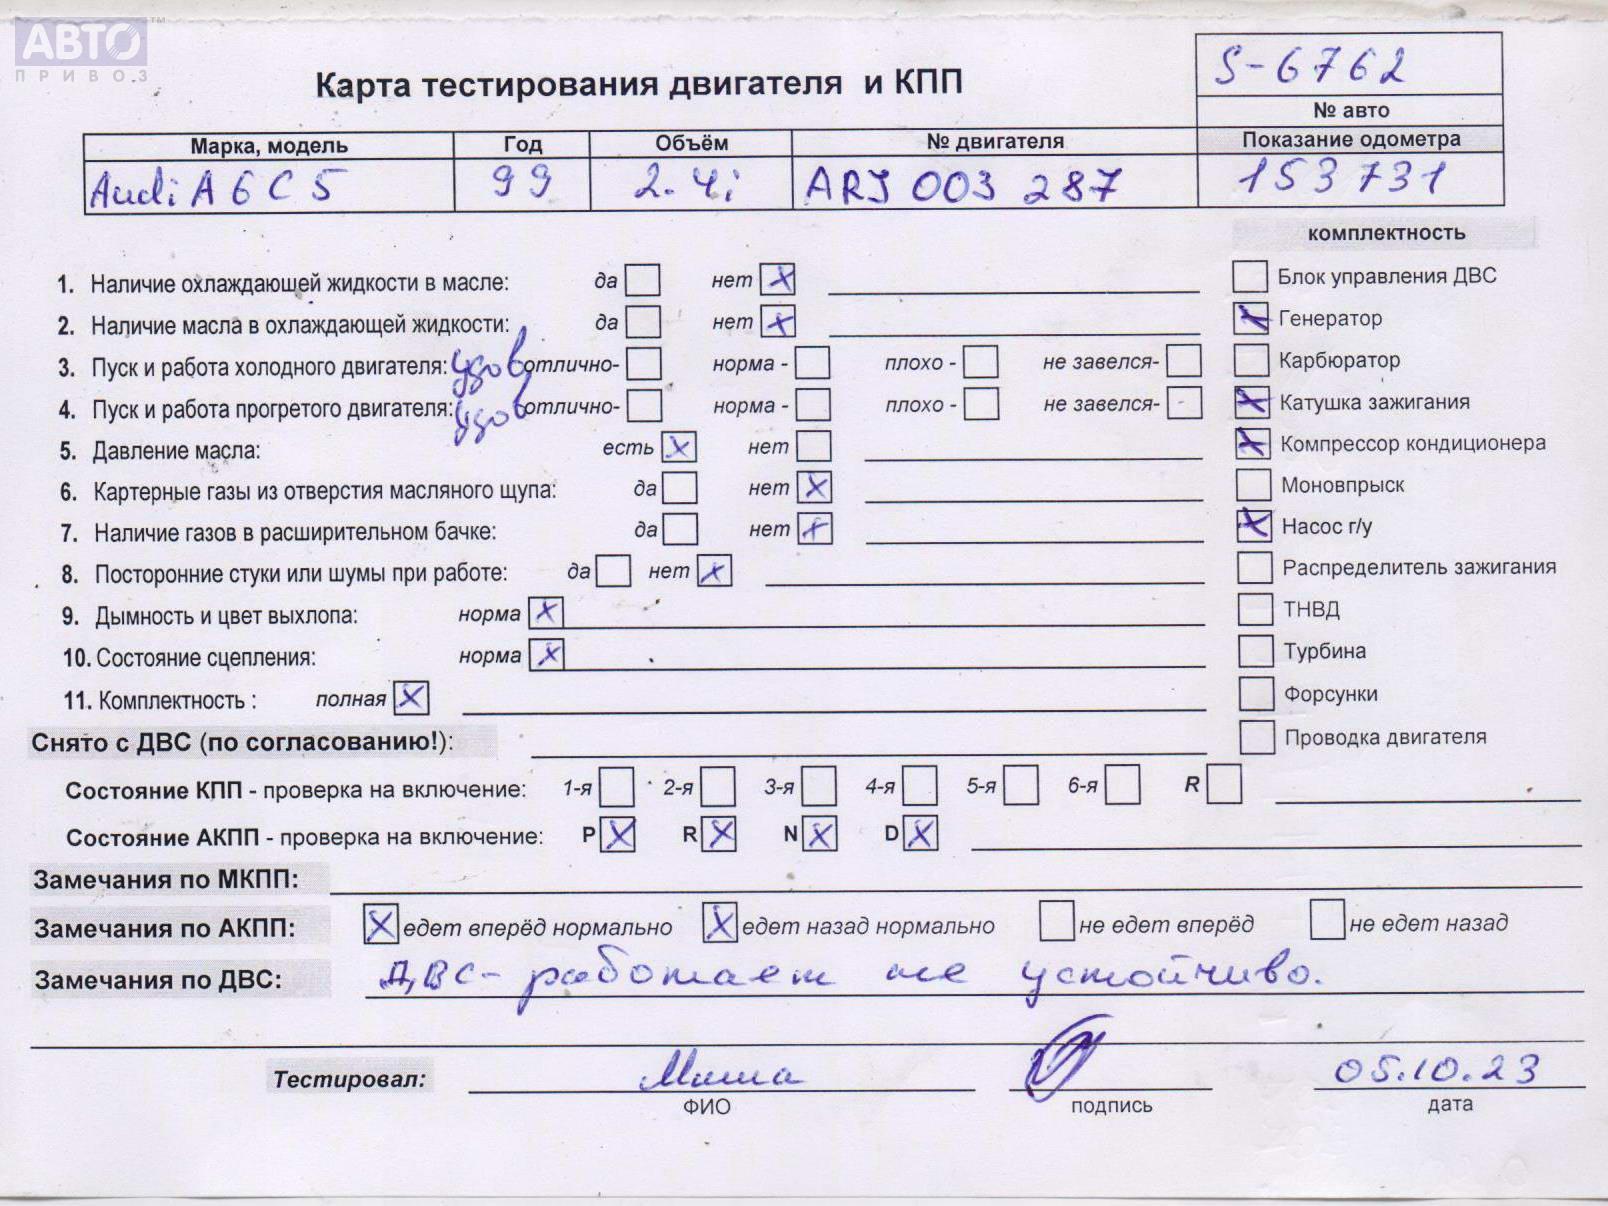 АВТО ™
ПРИВОЗ
S-6762
Карта тестирования двигателя и КПП
№ авто
Марка, модель Год Объём № двигателя Показание одометра
Audi A6 C5 99 2.4i ARJ 003 287 153731
комплектность
1. Наличие охлаждающей жидкости в масле: да нет x
Блок управления ДВС
2. Наличие масла в охлаждающей жидкости: да нет x
x Генератор
3. Пуск и работа холодного двигателя: удов отлично- норма - плохо - не завелся-
Карбюратор
4. Пуск и работа прогретого двигателя: удов отлично- норма - плохо - не завелся- -
x Катушка зажигания
5. Давление масла: есть x нет
x Компрессор кондиционера
6. Картерные газы из отверстия масляного щупа: да нет x
Моновпрыск
7. Наличие газов в расширительном бачке: да нет x
x Насос г/у
8. Посторонние стуки или шумы при работе: да нет x
Распределитель зажигания
9. Дымность и цвет выхлопа: норма x
ТНВД
10. Состояние сцепления: норма x
Турбина
11. Комплектность : полная x
Форсунки
Снято с ДВС (по согласованию!):
Проводка двигателя
Состояние КПП - проверка на включение: 1-я 2-я 3-я 4-я 5-я 6-я R
Состояние АКПП - проверка на включение: P x R x N x D x
Замечания по МКПП:
Замечания по АКПП: x едет вперёд нормально x едет назад нормально не едет вперёд не едет назад
Замечания по ДВС: ДВС - работает не устойчиво.
Тестировал: Миша 05.10.23
ФИО подпись дата